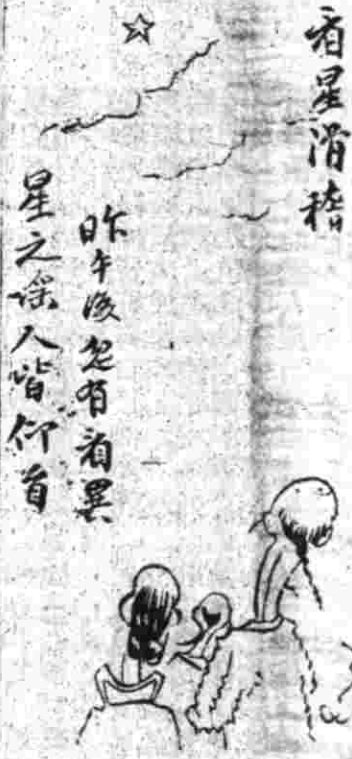 看星滑稽
昨午後忽有看異
星之謠人皆仰首